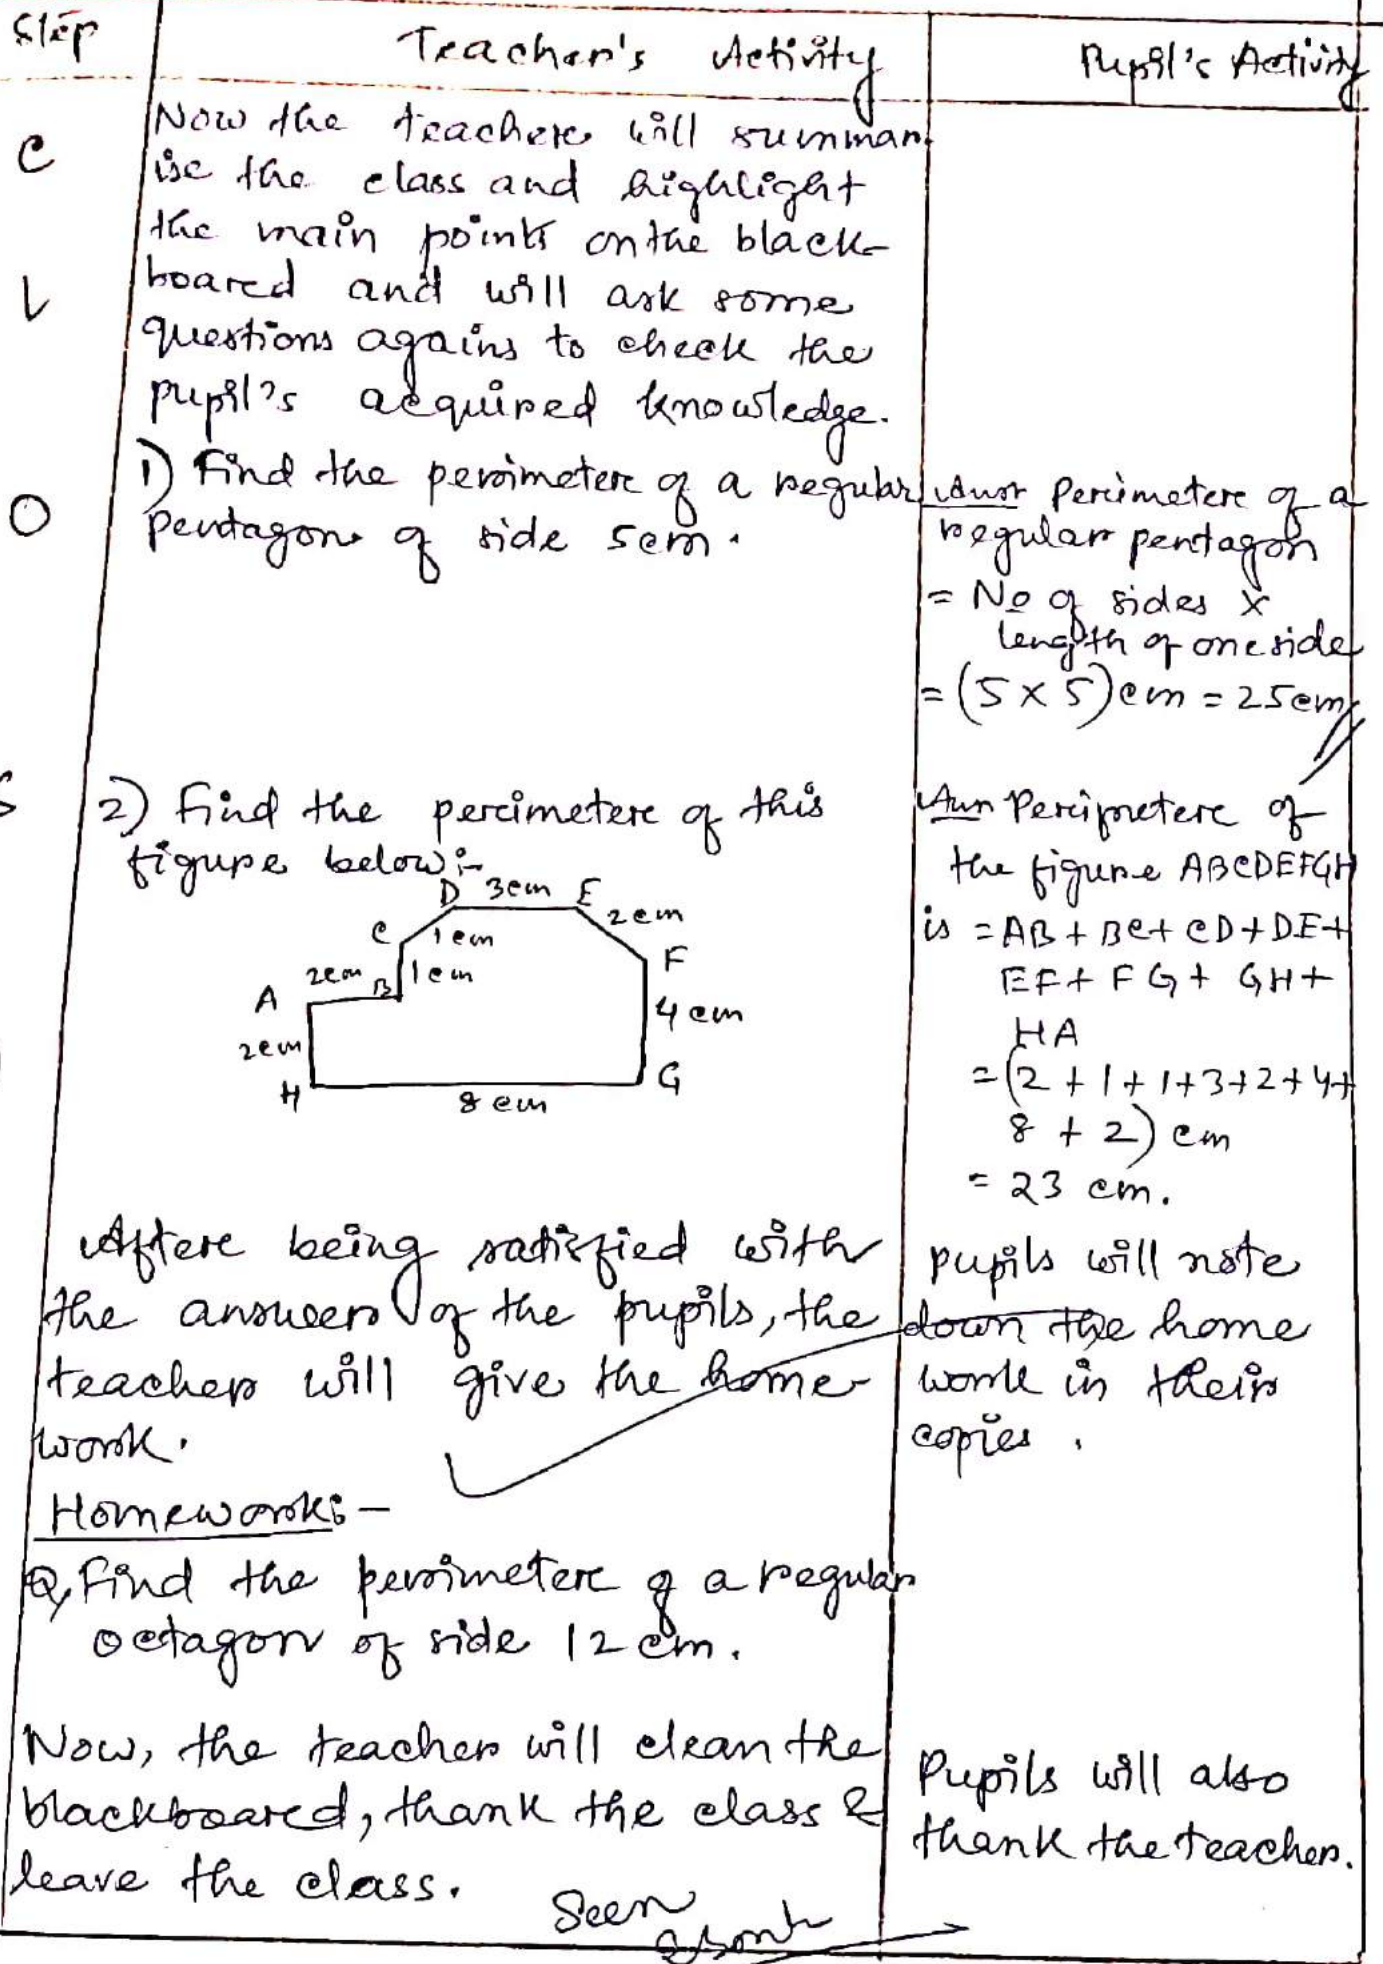 Step
Teacher's Activity
Pupil's Activity
C
L
O
S
Now the teacher will summar
ise the class and highlight
the main points on the black-
board and will ask some
questions agains to check the
pupil's acquired knowledge.
1) Find the perimeter of a regular
pentagon of side 5cm.
Ans Perimeter of a
regular pentagon
= No of sides x
length of one side
= (5 x 5)cm = 25cm
2) Find the perimeter of this
figure below:-
D 3cm E
2cm
C 1cm
F
2cm B 1cm
A
4cm
2cm
H G
8 cm
Ans Perimeter of
the figure ABCDEFGH
is = AB + BC + CD + DE +
EF + FG + GH +
HA
= (2 + 1 + 1 + 3 + 2 + 4 +
8 + 2) cm
= 23 cm.
After being satisfied with
the answers of the pupils, the
teacher will give the home-
work.
pupils will note
down the home
work in their
copies.
Homework:-
Q, Find the perimeter of a regular
octagon of side 12 cm.
Now, the teacher will clean the
blackboard, thank the class &
leave the class.
Pupils will also
thank the teacher.
Seen